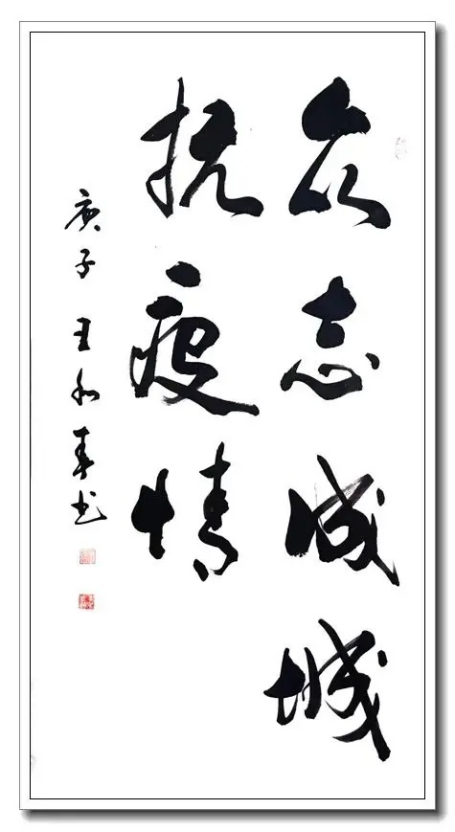 众志成城
抗疫情
庚子 王和春书